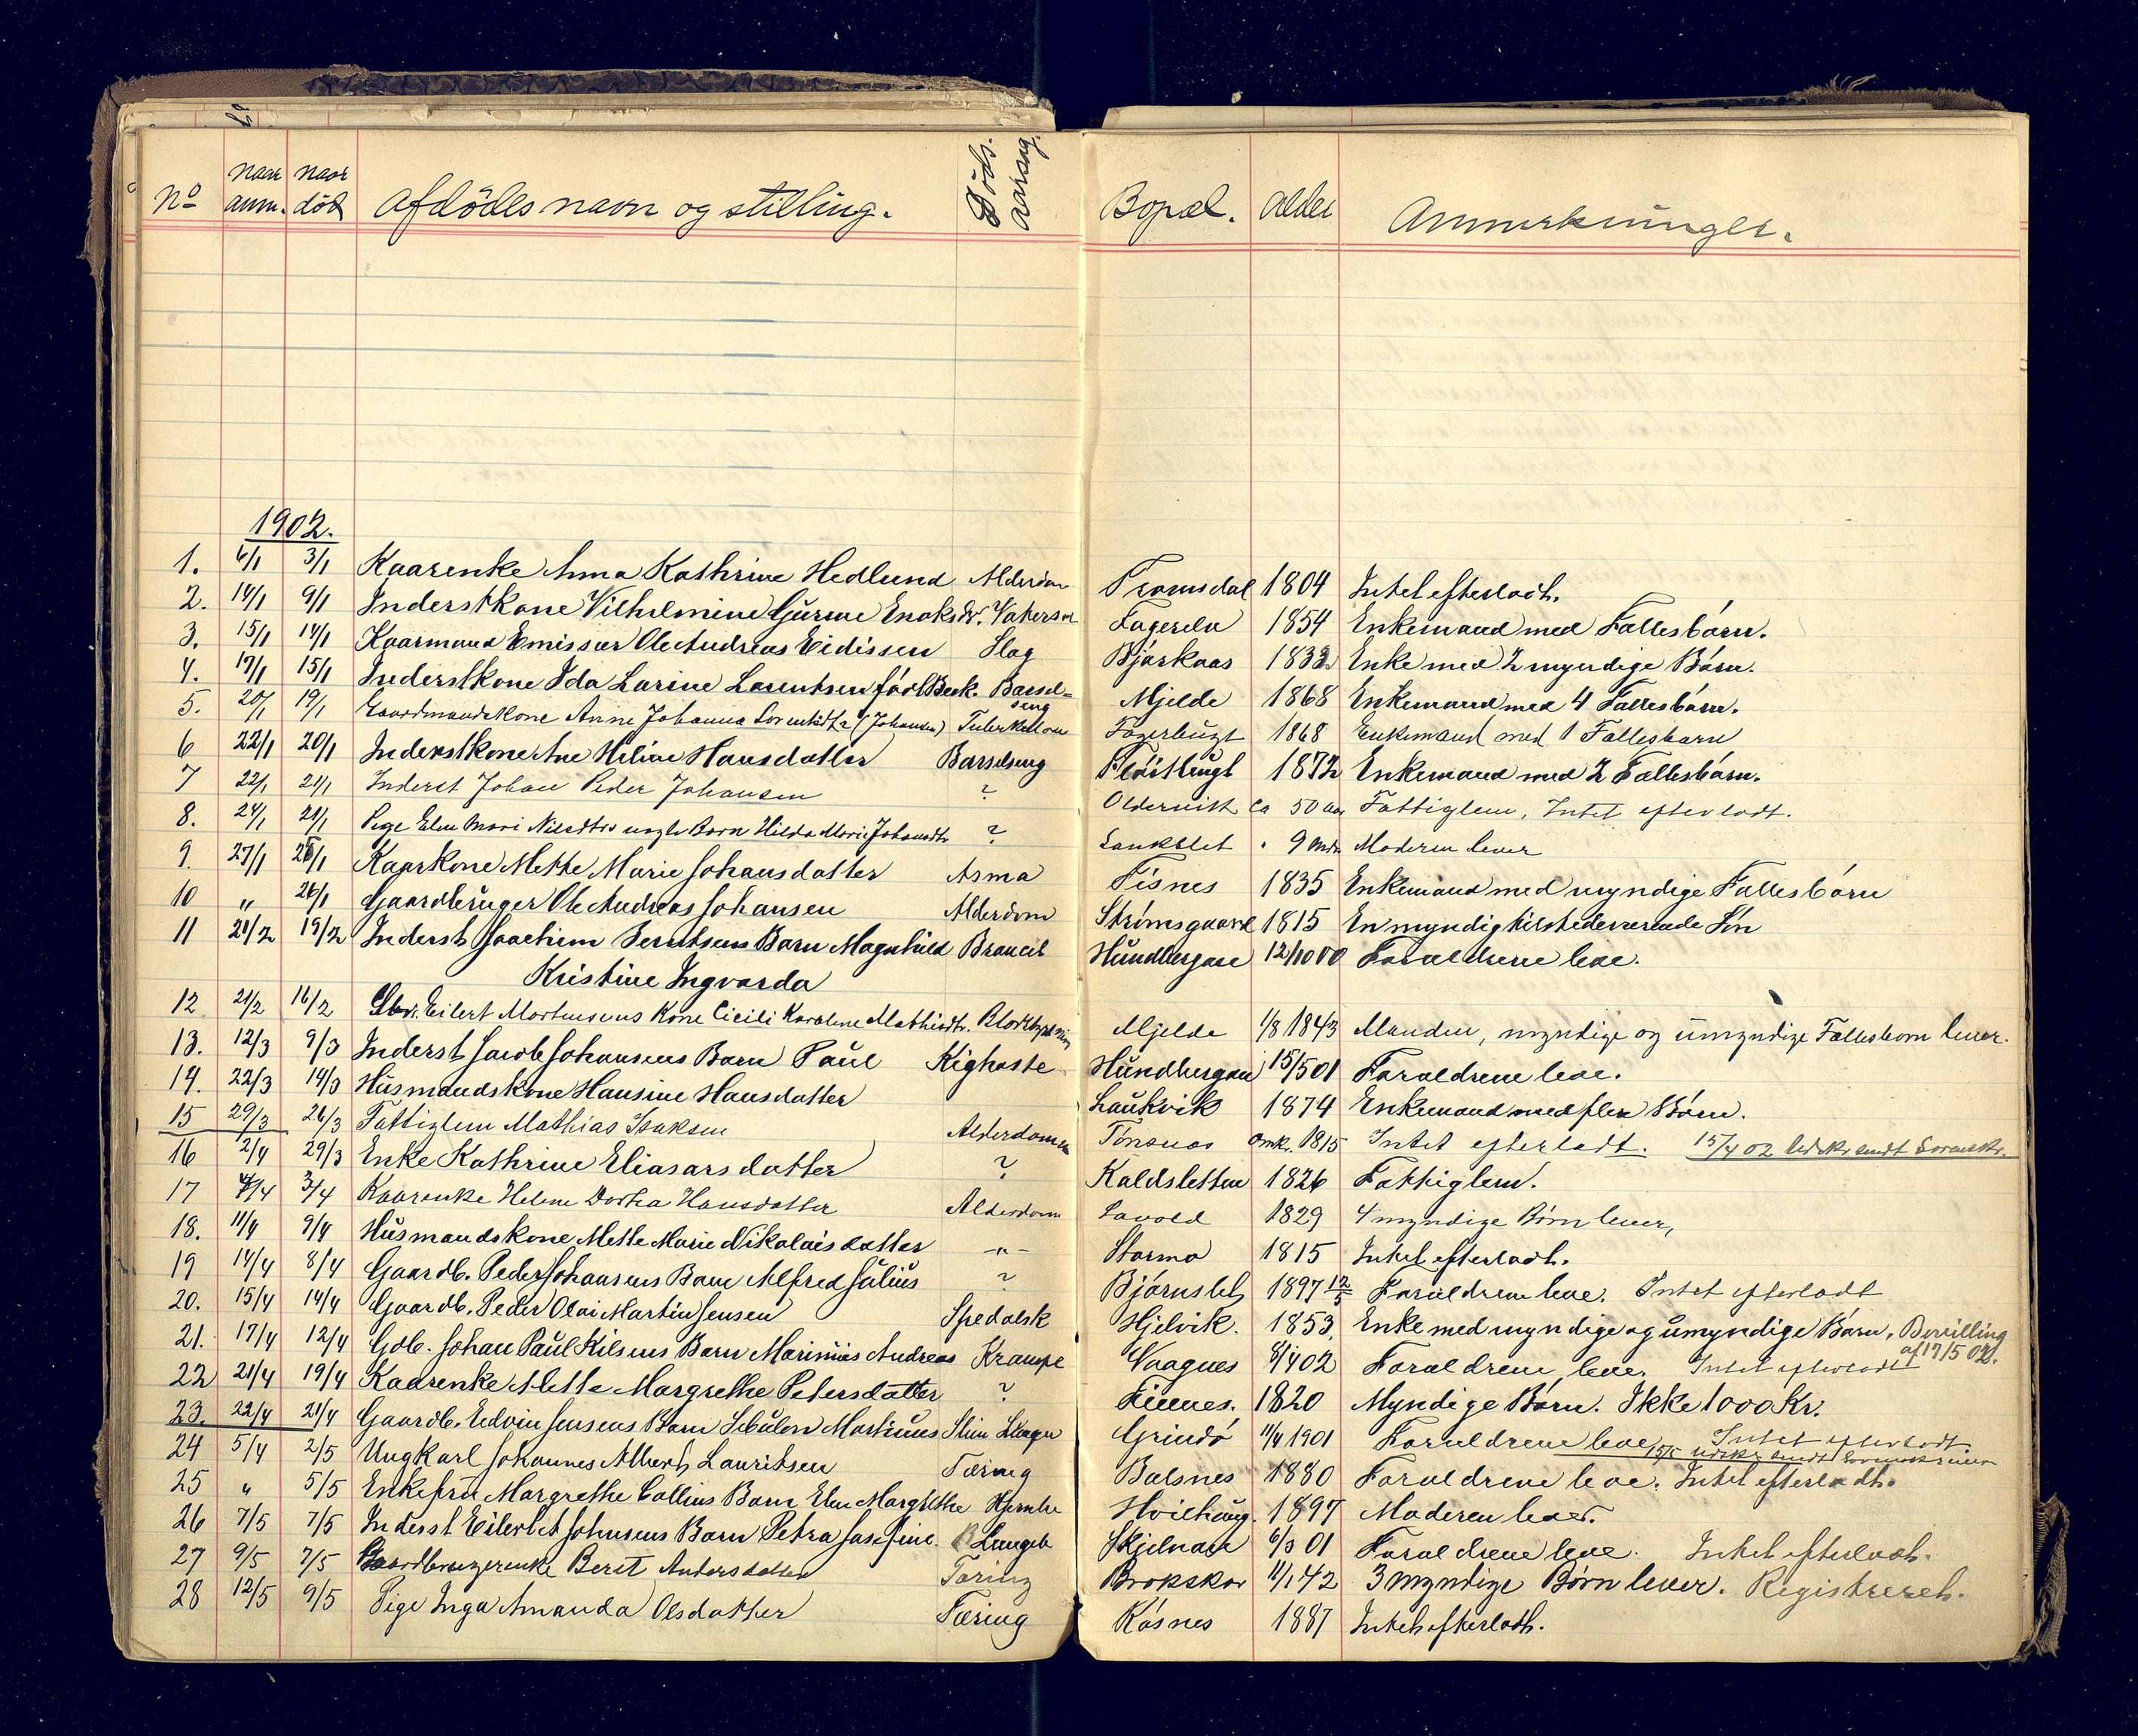 No naar anm. naar død Afdødes navn og stilling. Døds aarsag. Bopæl. Alder Anmerkninger.
1902.
1. 6/1 3/1 Kaarenke Anna Kathrine Hedlund Alderdom Tromsdal 1804 Intet efterladt.
2. 14/1 9/1 Inderstkone Vilhelmine Gurine Enoksdr. Vatersot Fagerelv 1854 Enkemand med Fællesbørn.
3. 15/1 14/1 Kaarmand Emissær Ole Andreas Eidissen Slag Bjørkaas 1832 Enke med 2 myndige Børn.
4. 17/1 15/1 Inderstkone Ida Larine Larentsen född Beck. Barsel=seng Mjelde 1868 Enkemand med 4 Fællesbørn.
5. 20/1 19/1 Gaardmandskone Anne Johanna Lorentsdtr (Johansen) Tuberkulose Fagerbugt 1868 Enkemand med 1 Fællesbarn
6 22/1 20/1 Inderstkone Ane Heline Hansdatter Barselseng 1872 Enkemand med 2 Fællesbørn.
7 22/1 21/1 Inderst Johan Peder Johansen ? Oldervik ca 50 aar Fattiglem, Intet efterladt.
8. 24/1 21/1 Pige Elen Mari Nilsdtrs uægte Barn Hilda Marie Johansdtr ? Lankslet 9 Mdr Moderen lever
9. 27/1 25/1 Kaarkone Mette Marie Johansdatter Asma Tisnes 1835 Enkemand med myndige Fællesbørn
10 " 26/1 Gaardbruger Ole Andreas Johansen Alderdom Strømsgaard 1815 En myndig tilstedeværende Søn
11 21/2 19/2 Inderst Joachim Berntsens Barn Magnhild Broncit Hundbergan 12/10 00 Forældrene leve.
Kristine Ingvarda
12 21/2 16/2 Gbr. Eilert Mortensens Kone Cicili Karolene Mathisdtr. Mjelde 1/8 1843 Manden, myndige og umyndige Fællesbørn lever.
13. 12/3 9/3 Inderst Jacob Johansens Barn Paul Kighoste Hundbergan 15/5 01 Forældrene leve.
14. 22/3 14/3 Husmandskone Hansine Hansdatter Laukvik 1874 Enkemand med flere Børn.
15 29/3 26/3 Fattiglem Mathias Isaksen Alderdommen Tønsnes Omkr. 1815 Intet efterladt. 15/4 02 Udskr. sendt Sorenskr.
16 2/4 29/3 Enke Kathrine Eliasarsdatter ? Kaldsletten 1826 Fattiglem.
17 4/4 3/4 Kaarenke Helene Dortea Hansdatter Alderdom Lavold 1829 4 myndige Børn lever,
18. 11/4 9/4 Husmandskone Mette Marie Nikolaisdatter -"- Stormo 1815 Intet efterladt.
19 14/4 8/4 Gaardb. Peder Johansens Barn Alfred Julius ? Bjørnslet 1897 12/5 Forældrene leve. Intet efterladt
20. 15/4 14/4 Gaardb. Peder Olai Martin Jensen Spedalsk Hjelvik. 1853 Enke med myndige og umyndige Børn, Bevilling af 17/5 02.
21. 17/4 12/4 Gdb. Johan Paul Kilsens Barn Marinius Andreas Krampe Vaagnes 8/4 02 Forældrene leve. Intet efterladt
22 21/4 19/4 Kaarenke Mette Margrethe Petersdatter ? Finnes. 1820 Myndige Børn. Ikke 1000 Kr.
23. 22/4 21/4 Gaardb. Edvin Jensens Barn Sebulon Martinus Grindø 11/4 1901 Forældrene leve Intet efterladt
15/5 Udskr. sendt Sorenskriveren
24 5/4 2/5 Ungkarl Johannes Albert Lauritsen Tæring Balsnes 1880 Forældrene leve. Intet efterladt.
25 " 5/5 Enkefru Margrethe Collins Barn Elen Margrethe Hjernebe Hvilhaug. 1897 Moderen lever.
26 7/5 7/5 Inderst Eilert Johnsens Barn Petra Josefine. Lungebe Skjelnan 6/3 01 Forældrene leve. Intet efterladt.
27 9/5 7/5 Gaardbrugerenke Berit Andersdatter Tæring Brokskar 11/1 42 3 myndige Børn lever. Registreret.
28 12/5 9/5 Pige Inga Amanda Olsdatter Tæring Kåsnes 1887 Intet efterladt.